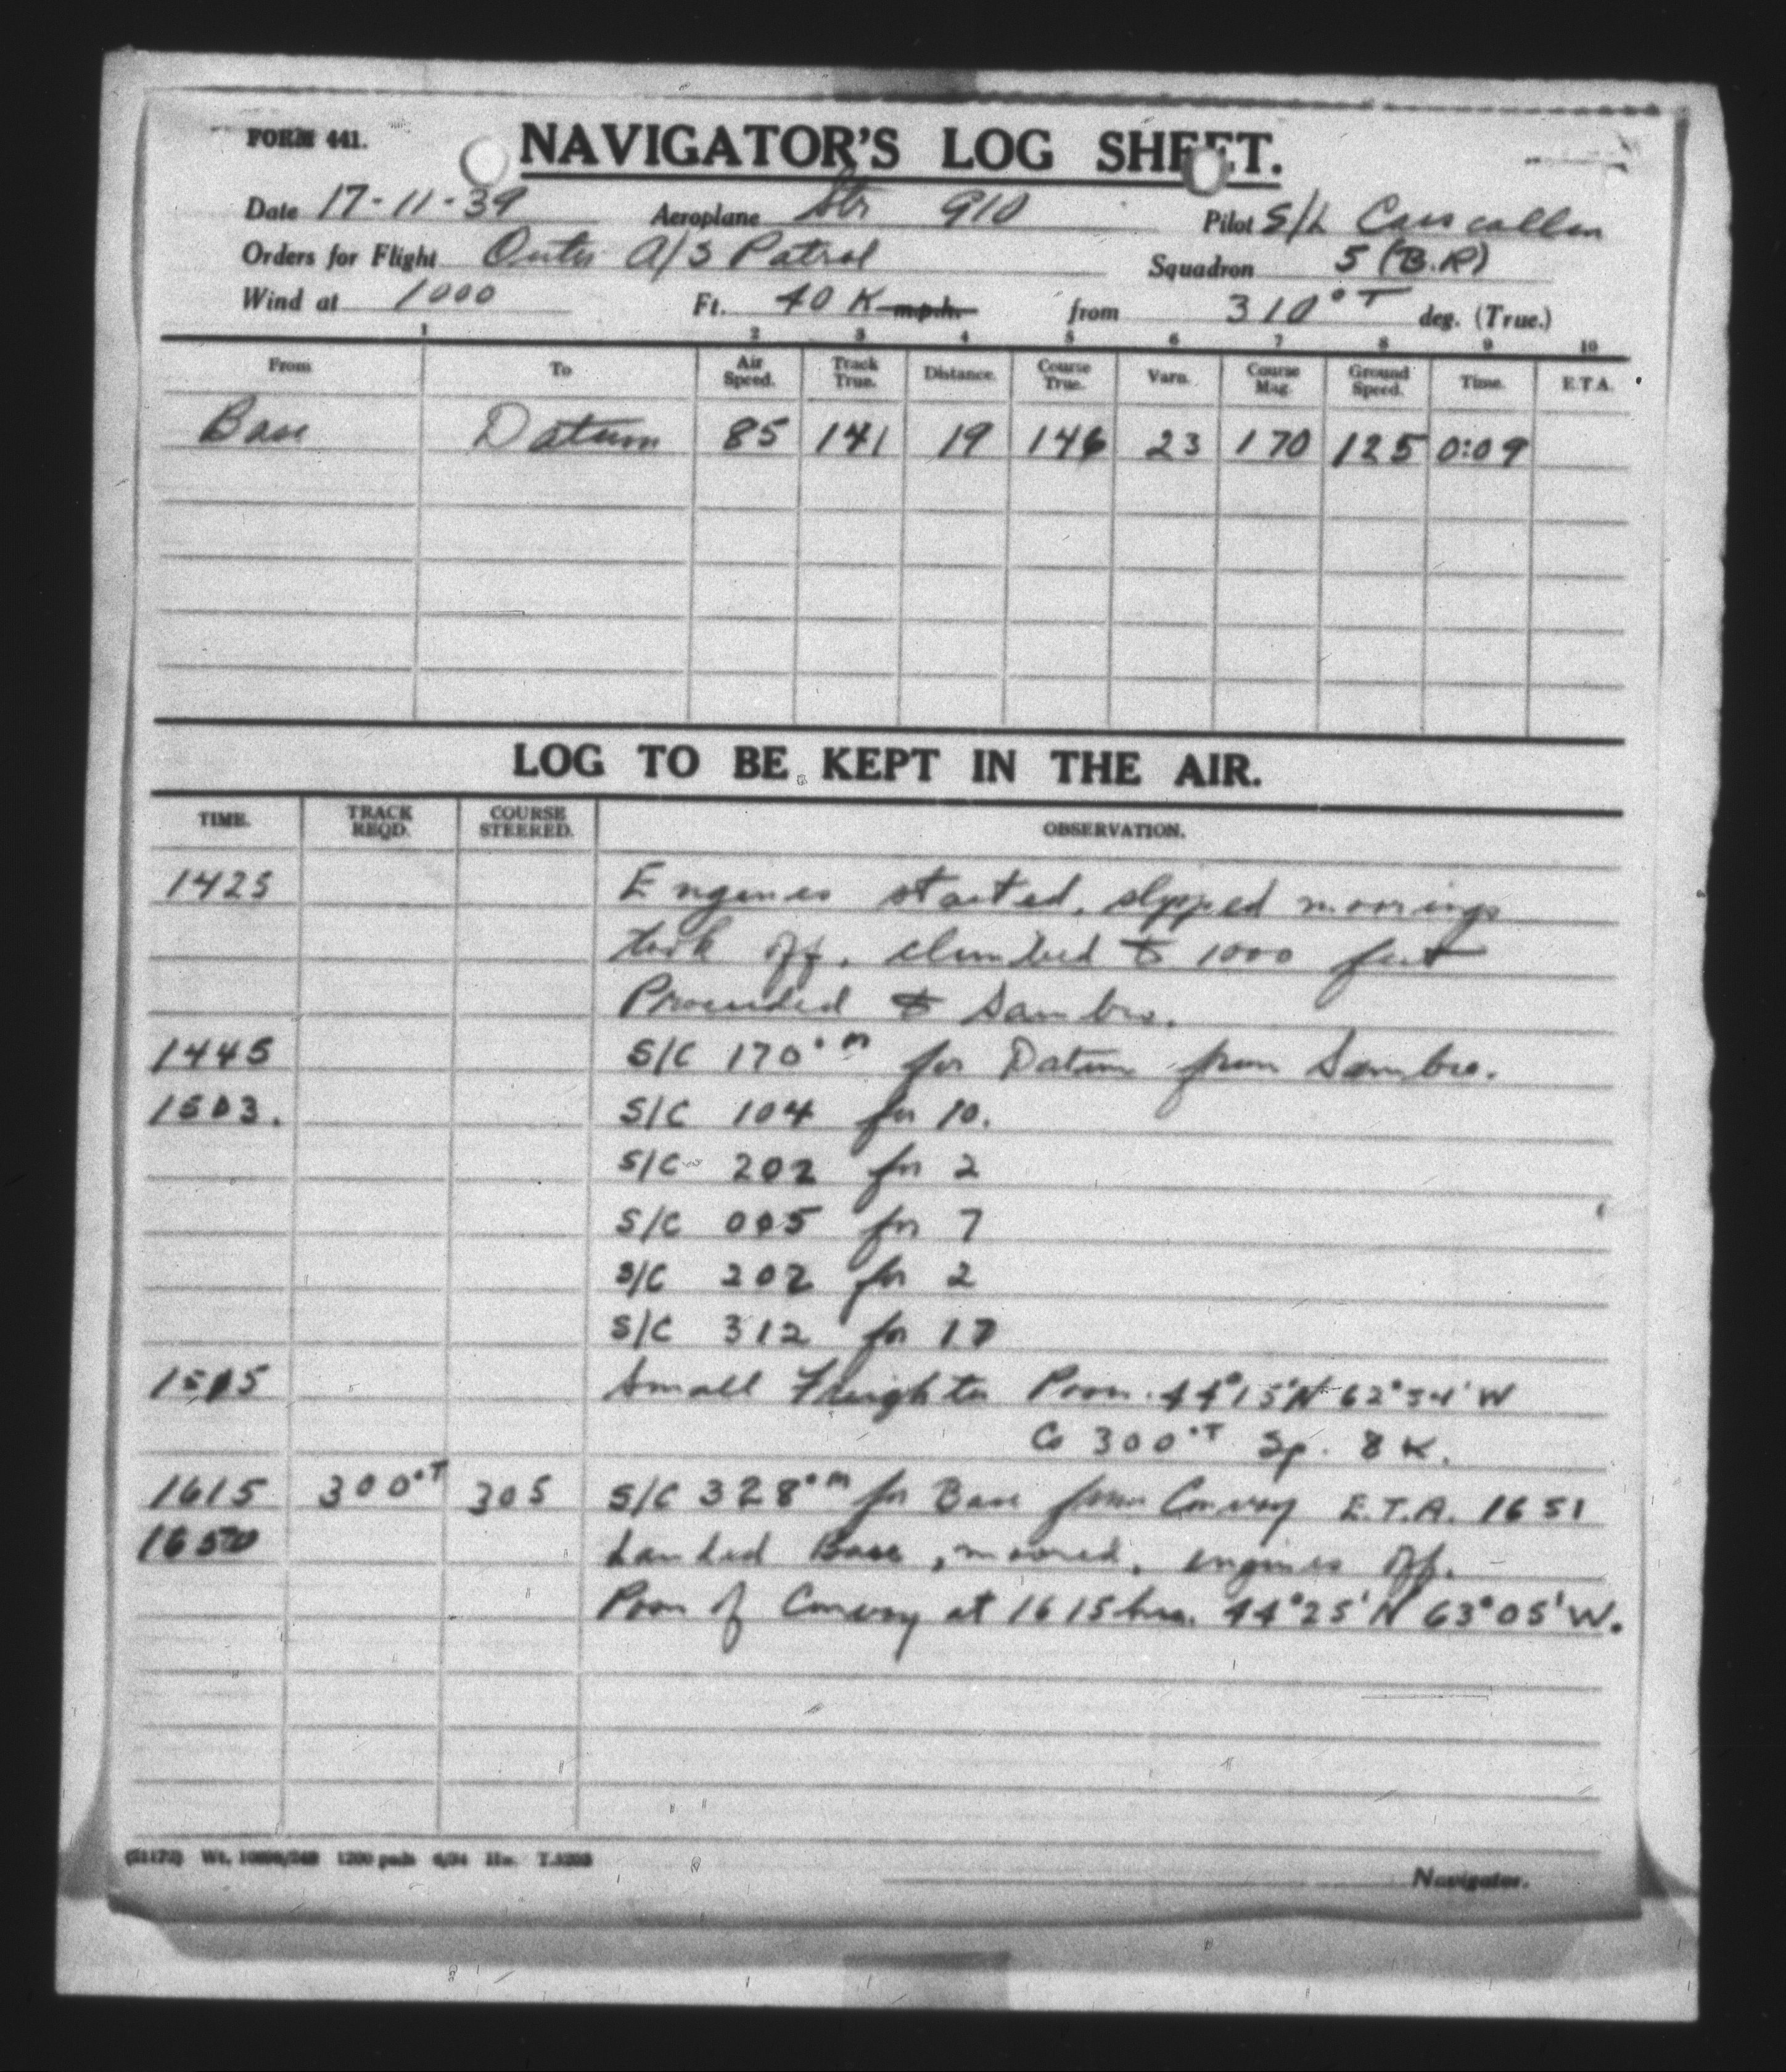 FORM 441.
NAVIGATOR'S LOG SHEET.
Date 17-11-39 Aeroplane Str 910 Pilot S/L Carscallen
Orders for Flight Outer A/S Patrol Squadron 5 (B.R)
Wind at 1000 Ft. 40 K m.p.h. from 310°T deg. (True.)
1 2 3 4 5 6 7 8 9 10
From To Air Speed. Track True. Distance. Course True. Varn. Course Mag. Ground Speed. Time. E.T.A.
Base Datum 85 141 19 146 23 170 125 0:09
LOG TO BE KEPT IN THE AIR.
TIME. TRACK REQD. COURSE STEERED. OBSERVATION.
1425 Engines started, slipped moorings
took off, climbed to 1000 feet
Proceeded to Sambro.
1445 S/C 170°m for Datum from Sambro.
1503. S/C 104 for 10.
S/C 202 for 2
S/C 005 for 7
S/C 202 for 2
S/C 312 for 17
1515 Small Freighter Posn. 44°15'N 62°54'W
Co 300°T Sp. 8 K.
1615 300°T 305 S/C 328°m for Base from Convoy E.T.A. 1651
1650 Landed Base, moored, engines off.
Posn of Convoy at 1615 hrs. 44°25'N 63°05'W.
1200 pads
Navigator.